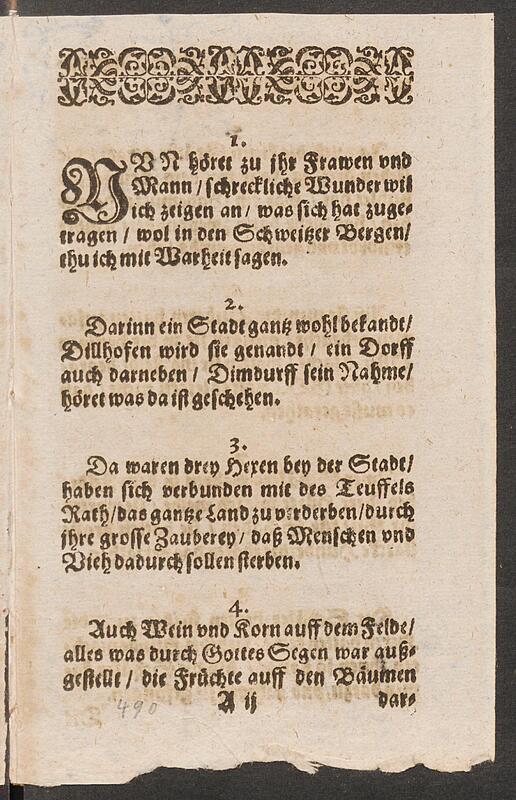 1.
NUN höret zu jhr Frawen vnd
Mann / schreckliche Wunder wil
ich zeigen an / was sich hat zuge-
tragen / wol in den Schweitzer Bergen /
thu ich mit Warheit sagen.
2.
Darinn ein Stadt gantz wohl bekandt /
Dillhofen wird sie genandt / ein Dorff
auch darneben / Dimdurff sein Nahme /
höret was da ist geschehen.
3.
Da waren drey Hexen bey der Stadt /
haben sich verbunden mit des Teuffels
Rath / das gantze Land zu verderben / durch
jhre grosse Zauberey / daß Menschen vnd
Vieh dadurch sollen sterben.
4.
Auch Wein vnd Korn auff dem Felde /
alles was durch Gottes Segen war auß-
gestellt / die Früchte auff den Bäumen
A ij dar-
490